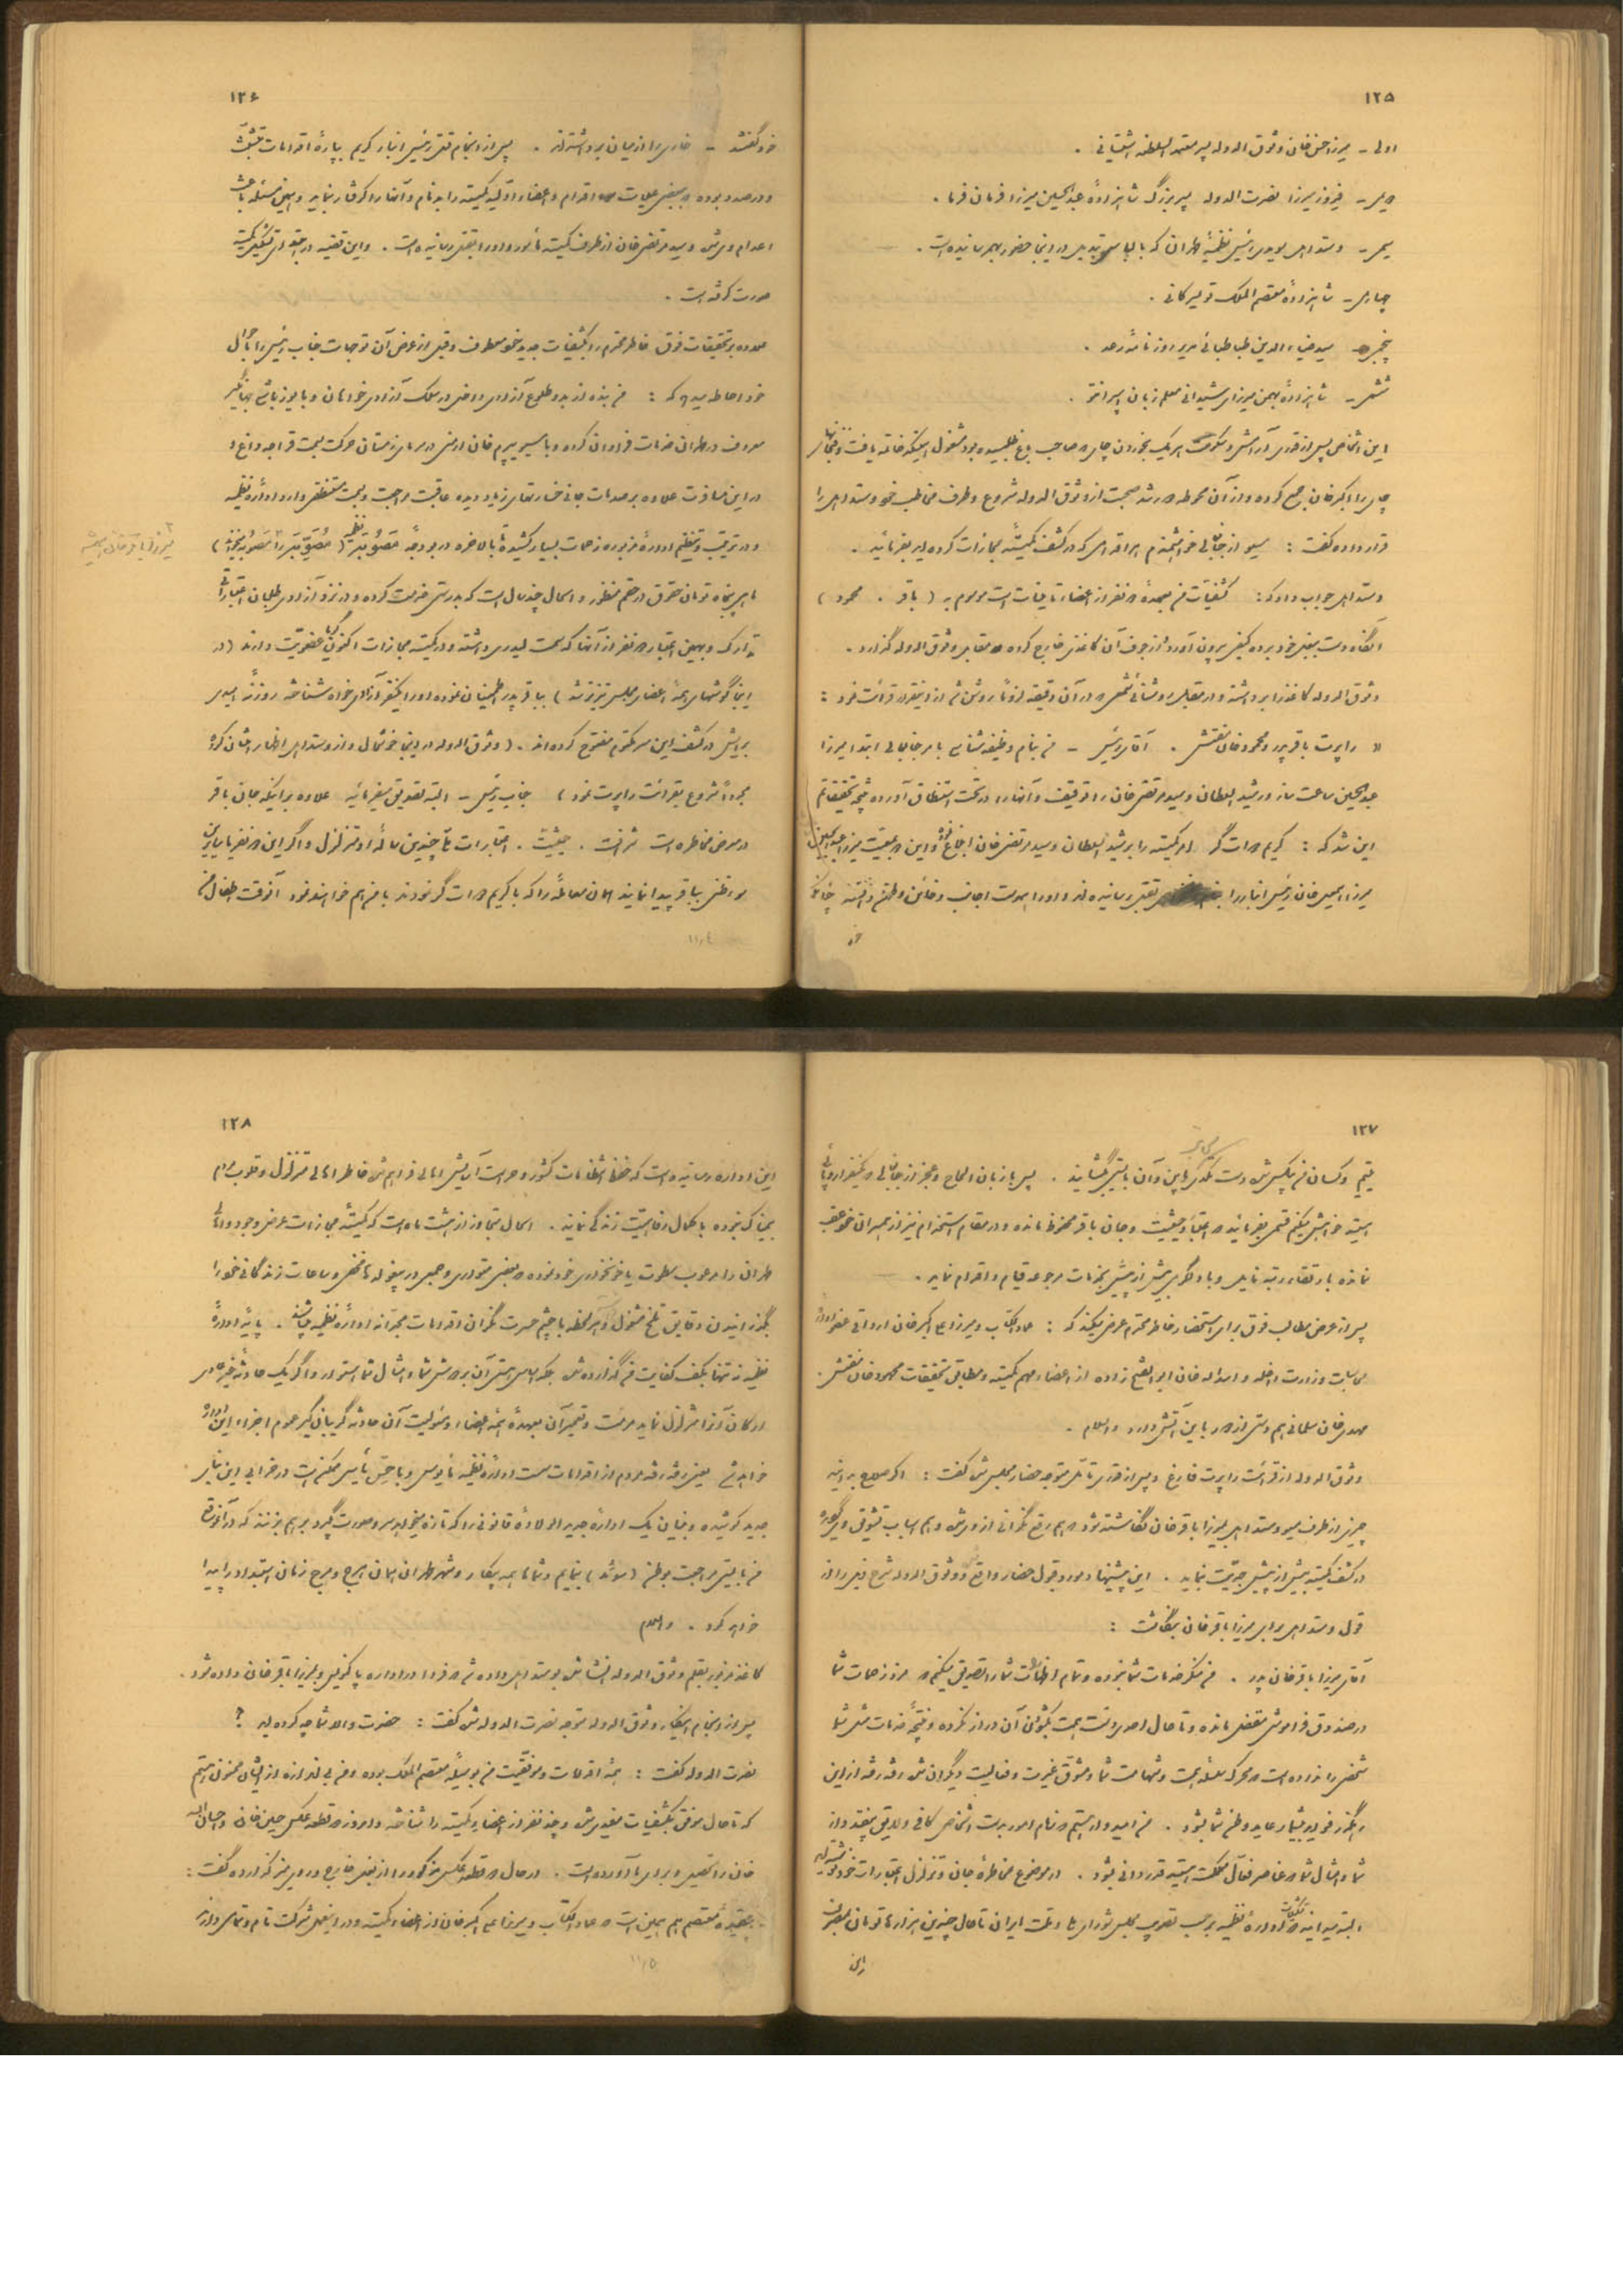 ۱۲۵
اولی - میرزا حسن خان وثوق الدوله پسر معتمد السلطنه آشتیانی .
فیروز میرزا نصرت الدوله پسر بزرگ شاهزاده عبدالحسین میرزا فرمان فرما .
رئیس نظمیهٔ طهران که با لباس تبدیل در اینجا حضور بهم رسانیده است .
چهارمی - شاهزاده معتصم الملک تویسرکانی .
پنجمی - سید ضیاء الدین طباطبائی مدیر روزنامهٔ رعد .
ششمی - شاهزاده بهمن میرزای شیدانی معلم زبان اسپرانتو .
این اشخاص پس از قدری آرامش و سکوت هر یک بخوردن چای صاحب باغ طلبیده بود مشغول همینکه خاتمه یافت و فنجانهای
چای را اکبر خان جمع کرده و از آن محوطه در شد صحبت از وثوق الدوله شروع و طرف مخاطب خود وستداهل را
قرار داده گفت : مسیو از جنابعالی خواهشمندم هر اقدامی که در کشف کمیتهٔ مجازات کرده اید بفرمائید .
وستداهل جواب داد که : کشفیات من بعهدهٔ دو نفر از اعضاء تأمینات است موسوم به ( باقر . محمود )
آنگاه دست ببغل خود برده کیفی بیرون آورد از جوف آن کاغذی خارج کرده مقابل وثوق الدوله گذارد .
وثوق الدوله کاغذ را برداشته و در مقابل روشنائی شمعی که در آن دقیقه لزوماً روشن شد از اینقرار قرائت نمود :
« راپرت باقر پدر و محمود خان مفتش . آقای رئیس - من بنام وظیفه شناسی با امر جنابعالی ابتدا میرزا
عبدالحسین ساعت ساز و رشید السلطان و سید مرتضی خان را توقیف و آنها را در تحت استنطاق آورده نتیجه تحقیقاتم
این شد که : کریم دواتگر امر کمیته را برشید السلطان و سید مرتضی خان ابلاغ نموده و این دو بمعیت میرزا عبدالحسین
میرزا اسمعیل خان رئیس انبار را بقتل رسانیده اند و او را همدست اجانب و خائن وطن دانسته چنانکه
خود
۱۲۶
خود گفتند - خاری را از میان برداشته اند . پس از انجام قتل رئیس انبار کریم بپارهٔ اقدامات تشبث
و در صدد بوده ببعضی عملیات اقدام و اعضاء اولیه کمیته را بدنام و آنها را گرفتار نماید و همین مسئله باعث
اعدام وی شده و سید مرتضی خان از طرف کمیته مأمور و او را بقتل رسانیده است . و این قضیه در بدو تشکیل کمیته
صورت گرفته است .
علاوه بر تحقیقات فوق خاطر محترم را بکشفیات جدید خود معطوف و قبل از عرض آن توجهات جناب رئیس را باحوال
خود احاطه میدهد که : من بنده از بدو طلوع آزادی داخل در سلک آزادی خواهان و با
معروف در طهران خدمات فراوان کرده و با مسیو یپرم خان ارمنی در سرمای زمستان حرکت بسمت قراجه داغ و
در این مسافرت علاوه بر صدمات جانی خسارتهای زیاد دیده عاقبت مراجعت و بسمت مستنطقی وارد ادارهٔ نظمیه
و در ترتیب و تنظیم ادارهٔ مزبوره زحمات بسیار کشیده تا بالاخره در بودجهٔ نظمیه
ماهی پنجاه تومان حقوق در حقم منظور و امسال چند سال است که بدرستی خدمت کرده و در نزد آزادی طلبان اعتبارات
تدارک و بهمین اعتبار دو نفر از آنها که سمت لیدری داشته و در کمیته مجازات اکنون گویا عضویت دارند ( در
اینجا گوشهای همهٔ اعضای مجلس تیزتر شد ) بباقر پدر اطمینان نموده او را یکنفر آزادی خواه شناخته روزنهٔ امیدی
برایش در کشف این سر مکتوم مفتوح کرده اند . ( وثوق الدوله در اینجا خوشحال و از وستداهل اظهار امتنان کرده
مجدداً شروع بقرائت راپرت نمود ) جناب رئیس - البته تصدیق میفرمائید علاوه بر اینکه جان باقر
در معرض مخاطره است شرافت . حیثیت . اعتبارات چندین سالهٔ او متزلزل و اگر این دو نفر یا سایرین
سوء ظنی بباقر پیدا نمایند همان معامله را که با کریم دواتگر نمودند با من هم خواهند نمود آنوقت اطفال من
۱۱,۴
۱۲۷
یتیم و کسان من بیکس شده دست تکدی باین و آن بایستی بگشایند . پس با زبان الحاح و عجز از جنابعالی که یکنفر اروپائی
هستید خواهش میکنم قسمی بفرمائید که اعتبار و حیثیت و جان باقر محفوظ مانده و در مقام استخدام نیز از همسران خود عقب
نمانده با ارتقاء رتبه نایل و با دلگرمی بیش از پیش بخدمات مرجوعه قیام و اقدام نماید .
پس از عرض مطالب فوق برای استحضار خاطر محترم عرض میکند که : عماد الکتاب و میرزا علی اکبر خان ارداقی عضو ادارهٔ
محاسبات وزارت داخله و اسدالله خان ابوالفتح زاده از اعضاء مهم کمیته و مطابق تحقیقات محمود خان مفتش .
مهدی خان سلماسی هم دستی از دور باین آتش دارد والسلام .
وثوق الدوله از قرائت راپرت فارغ و پس از قدری تأمل متوجه حضار مجلس شده گفت : اگر صلاح بدانید
چیزی از طرف مسیو وستداهل بمیرزا باقر خان نگاشته شود که هم رفع نگرانی از او شده و هم اسباب تشویق وی گردیده
در کشف کمیته بیش از پیش جدیت نماید . این پیشنهاد مورد قبول حضار واقع و وثوق الدوله شرح ذیل را از
قول وستداهل برای میرزا باقر خان نگاشت :
آقای میرزا باقر خان پدر . من منکر خدمات شما نبوده و تمام اظهارات شما را تصدیق میکنم که مزد زحمات شما
در صندوق فراموشی مقفل مانده و تا حال احدی دست همت بگشودن آن دراز نکرده و نتیجهٔ خدمات ملی شما
محرک سلسلهٔ همت و شهامت شما و مشوق غیرت و فعالیت دیگران شده رفته رفته از این
رهگذر فواید بیشمار عاید وطن شما بشود . من امیدوار هستم که زمام امور بدست اشخاص کافی و لایق بیفتد و از
شما و امثال شما که عناصر فعال مملکت هستید قدردانی بشود . در موضوع مخاطرهٔ جان و تزلزل اعتبارات خود نوشته اید
البته میدانید که تشکیلات ادارهٔ نظمیه برحسب تصویب مجلس شورای ملی دولت ایران تا حال چندین هزارها تومان بمصرف
این
۱۲۸
این اداره رسانیده است که حفظ انتظامات کشور و حراست آسایش اهالی فراهم شده خاطر اهالی متزلزل و قلوب مردم
بیمناک نبوده با کمال رفاهیت زندگی نمایند . امسال متجاوز از هشت ماه است که کمیتهٔ مجازات عرض وجود و اهالی
طهران را مرعوب سطوت یا خونخواری خود نموده بعضی متواری و جمعی در بیغوله ها مخفی و ساعات زندگانی خود را
بگذرانیدن دقایق تلخ مشغول و هر لحظه با چشم حسرت نگران اقدامات مجدانهٔ ادارهٔ نظمیه میباشند . پایهٔ ادارهٔ
نظمیه نه تنها بکف کفایت من گذارده شده بلکه اساس هستی آن بر دوش شما و امثال شما استوار و اگر یک حادثهٔ غیر عادی
ارکان آنرا متزلزل نماید مرمت و تعمیر آن بعهدهٔ همهٔ اعضاء و مسئولیت آن حادثه گریبان گیر عموم اجزاء این اداره
خواهد شد یعنی رفته رفته مردم از اقدامات سست ادارهٔ نظمیه مأیوس و با حس یأس ممکن است در خرابی این بنای
جدید کوشیده و بنیان یک ادارهٔ جدید الولادهٔ قانونی را که تازه میخواهد سر و صورت گیرد بر هم بزنند که در آنموقع
من بایستی مراجعت بوطنم ( سوئد ) بنمایم و شماها همه بیکار و شهر طهران همان هرج و مرج زمان استبداد را پیدا
خواهد کرد . والسلام
کاغذ مزبور بقلم وثوق الدوله انشاء شده بوستداهل داده شد که فردا در اداره پاکنویس و بمیرزا باقر خان داده شود .
پس از انجام اینکار وثوق الدوله متوجه نصرت الدوله شده گفت : حضرت والا شما چه کرده اید ؟
نصرت الدوله گفت : همهٔ اقدامات و موفقیت من بوسیلهٔ معتصم الملک بوده و من بی اندازه از ایشان ممنون هستم
که تا حال موفق بکشفیات مفیدی شده و چند نفر از اعضاء کمیته را شناخته و امروز دو قطعه عکس حسین خان و احسان الله
خان را تحصیل و برای ما آورده است . در حال دو قطعه عکس مذکور را از بغل خارج و روی میز گذارده گفت :
بعقیدهٔ معتصم هم همین است که عماد الکتاب و میرزا علی اکبر خان از اعضاء کمیته و در اینعمل شرکت تام و تمامی دارند
۱۱,۵